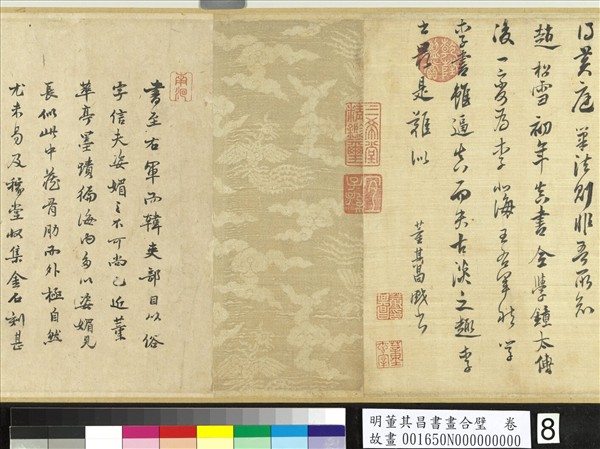 得黃庭筆法則非吾所知
趙松雪初年真書全學鍾太傅
後一變為李北海王右軍然學
李書雖逼真而失古淡之趣李
士最是難似
董其昌戲書
三希堂
精鑑璽
宜
子孫
書至右軍而韓吏部目以俗
字信夫姿媚之不可尚已近董
華亭墨蹟徧海內多以姿媚見
長似此中藏骨肋而外極自然
尤未易及穆堂收集金石刻甚
明董其昌書畫合璧 卷
故畫 001650N000000000
8